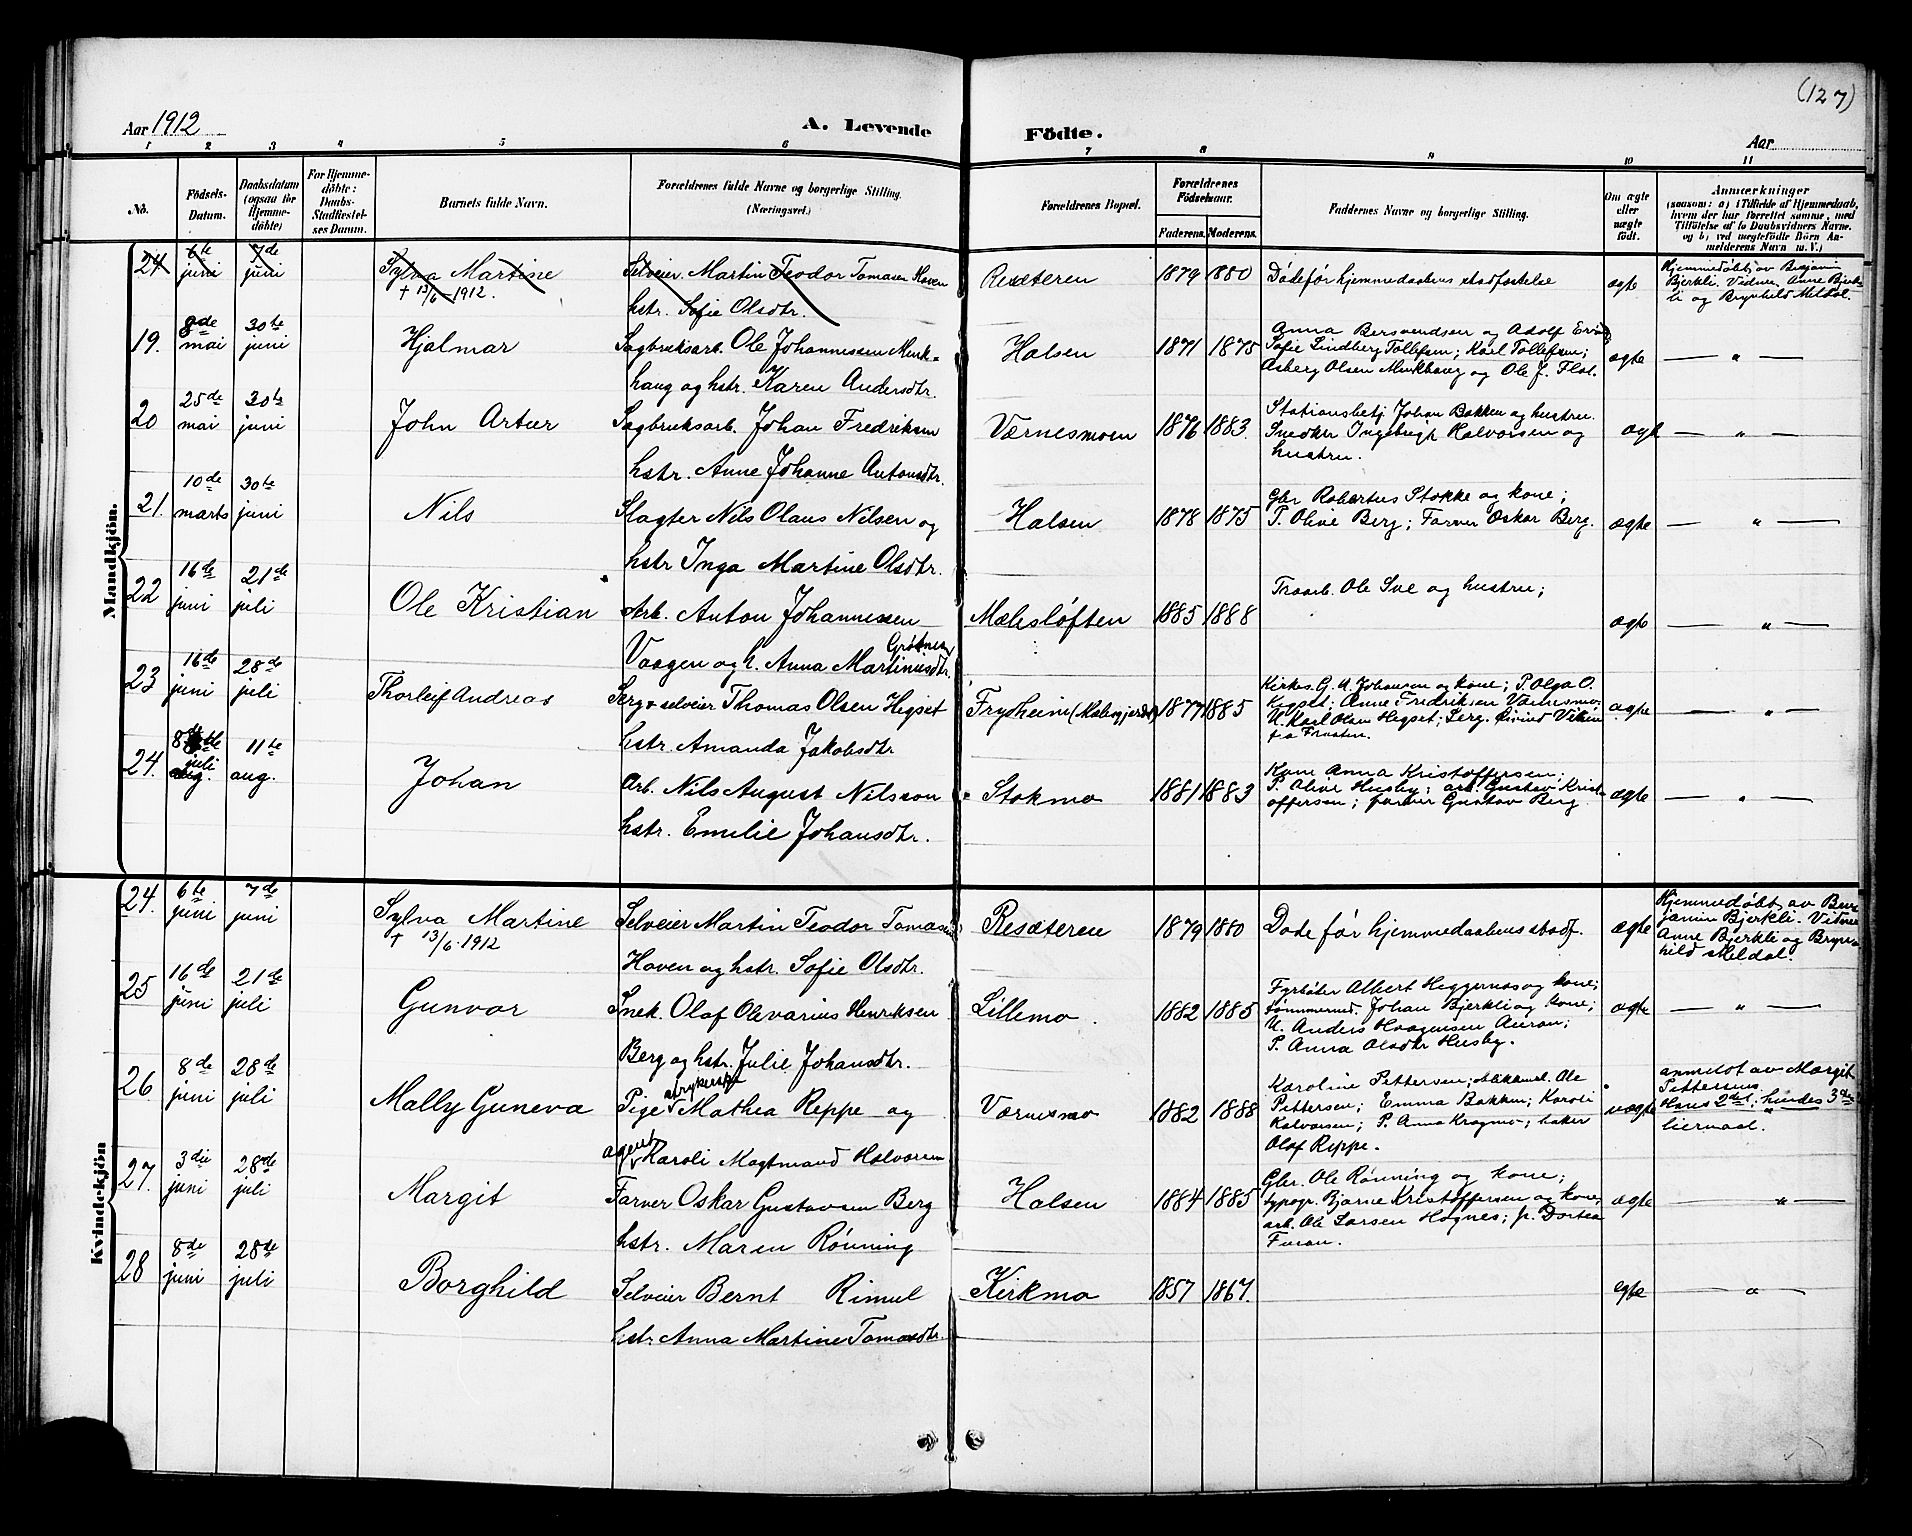 (127)
Aar 1912
A. Levende Födte.
Aar
1 2 3 4 5 6 7 8 9 10 11
No.
Födsels-Datum.
Daabsdatum (ogsaa for Hjemmedöbte)
For Hjemmedöbte: Daabs-Stadfæstelses Datum.
Barnets fulde Navn.
Forældrenes fulde Navne og borgerlige Stilling. (Næringsvei.)
Forældrenes Bopæl.
Forældrenes Födselsaar.
Faderens. Moderens.
Faddernes Navne og borgerlige Stilling.
Om ægte eller uægte födt.
Anmærkninger
(saasom: a) i Tilfælde af Hjemmedaab, hvem der har forrettet samme, med Tilföielse af to Daabsvidners Navne. og b) ved uægtefödte Börn Anmelderens Navn m. V.)
Mandkjön.
24 6te juni 7de juni Sylva Martine Selveier Martin Teodor Tomasen Hoven Resæteren 1879 1880 Döde för hjemmedaabens stadfæstelse ægte Hjemmedöbt av Benjamin
† 13/6 1912. hstr. Sofie Olsdtr. Bjerkli. Vidner Anne Bjerkli og Brynhild Meldal.
19. 8de mai 30te juni Hjalmar Sagbruksarb. Ole Johannessen Munk- Halsen 1871 1875 Anna Bersvendsen og Adolf
haug og hstr. Karen Andersdtr. Sofie Lindberg Tollefsen; Karl Tollefsen; ægte — " —
Asberg Olsen Munkhaug og Ole J. Flat.
20 25de mai 30te juni John Artur Sagbruksarb. Johan Fredriksen Værnesmoen 1876 1883 Stationsbetj. Johan Bakken og hustru. ægte — " —
hstr. Anne Johanne Antonsdtr. Snedker Ingebrigt Halvorsen og
hustru.
21. 10de marts 30te juni Nils Slagter Nils Olaus Nilsen og Halsen 1878 1875 Gbr Robertus Stokke og kone; ægte — " —
hstr Inga Martine Olsdtr. P. Olive Berg; Farver Oskar Berg.
22 16de juni 21de juli Ole Kristian Arb. Anton Johannessen Mælesløften 1885 1888 Traarb. Ole Sve og hustru; ægte — " —
Vaagen og h. Anna Martinusdtr.
23 16de juni 28de juli Thorleif Andreas Serg. & selveier Thomas Olsen Hegset Frydheim 1877 1885 Kirkes. G. A. Johansen og kone; P. Olga O. ægte — " —
hstr. Amanda Jakobsdtr Hegset; Anne Fredriksen Værnesmo;
U. Karl Olsen Hegset; Serg. Eivind
fra Frosten.
24. 8de juli 11te aug. Johan Arb. Nils August Nilsson Stokmo 1881 1883 Kone Anna Kristoffersen; ægte — " —
hstr. Emelie Johansdtr. P. Olive Husby; arb. Gustav Krist-
offersen; farver Gustav Berg
Kvindekjön
24. 6te juni 7de juni Sylva Martine Selveier Martin Teodor Tomasen Resæteren 1879 1880 Döde för hjemmedaabens stadf. ægte Hjemmedöbt av Ben-
† 13/6 1912 Hoven og hstr. Sofie Olsdtr. jamin Bjerkli. Vidner Anne Bjerkli og Bryn-
hild Meldal.
25 16de juni 21de juli Gunvor Snek. Olaf Olevarius Henriksen Lillemo 1882 1885 Fyrböter Albert Heggernæs og kone; ægte — " —
Berg og hstr. Julie Johansdtr. tömmermd. Johan Bjerkli og kone;
U. Anders Haagensen Auran;
P. Anna Olsdtr Husby.
26 8de juni 28de juli Mally Guneva Pige strykerske Mathea Reppe og Værnesmo 1882 1888 Karoline Pettersen; Ole uægte anmeldt av Margit
agent Karoli Magtmand Halvorsen Pettersen; Emma Bakken; Karoli Pettersens
Halvorsen; P. Anna Kragmo; baker Hans 2det; hendes 3die
Olaf Reppe. leiermaal.
27. 3die juni 28de juli Margit Farver Oskar Gustavsen Berg Halsen 1884 1885 Gbr. Ole Rönning og kone; ægte — " —
hstr. Maren Rönning typogr. Bjarne Kristoffersen og kone,
arb. Ole Larsen Hognes; p. Dortea
Furan.
28 8de juni 28de juli Borghild Selveier Bernt Rimul Kirkmo 1857 1867. egte — " —
hstr. Anna Martine Tomasdtr.